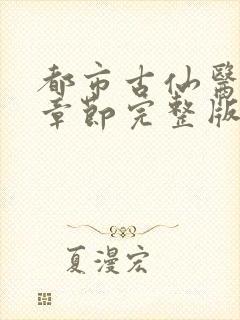 都市古仙醫
章節完整版
夏漫宏